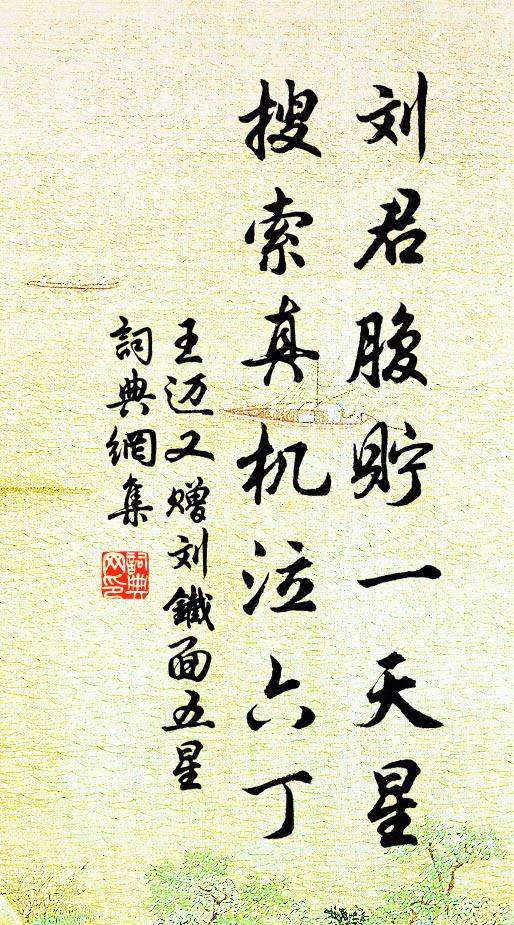 刘君腹贮一天星
搜索真机泣六丁
王迈又赠刘鐵面五星
詞典網集
詞典
网印